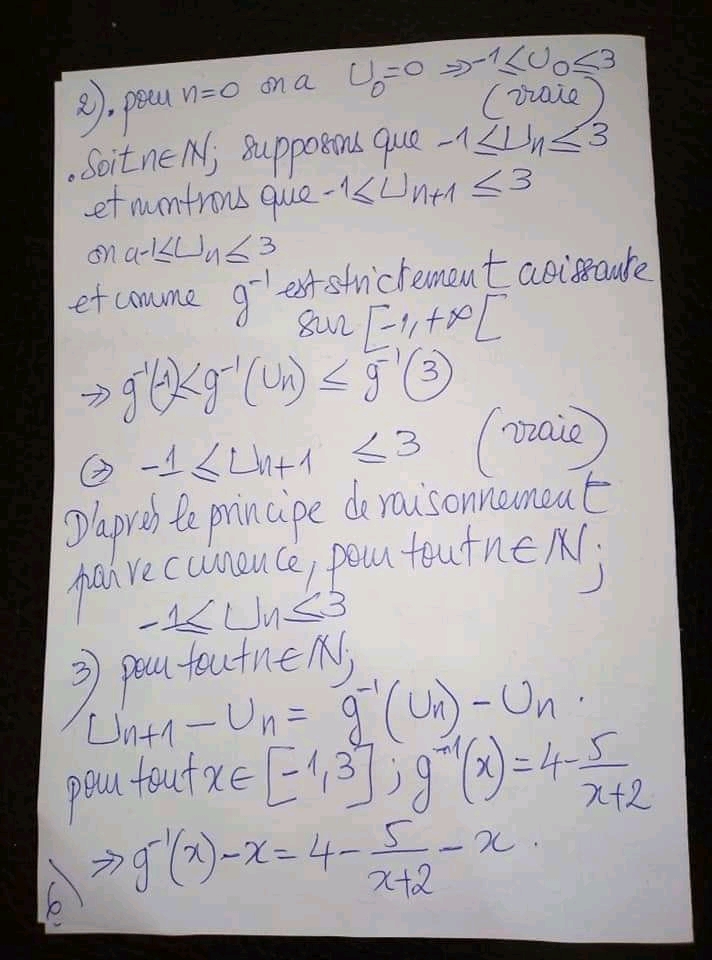 2). pour n=0 on a U₀=0 ⇒ -1≤U₀≤3
(vraie)
. Soit n∈ℕ; supposons que -1≤Un≤3
et montrons que -1≤Un+1 ≤3
on a -1≤Un≤3
et comme g⁻¹ est strictement croissante
sur [-1,+∞[
⇒ g⁻¹(-1)<g⁻¹(Un) ≤ g⁻¹(3)
⇔ -1≤Un+1 ≤3 (vraie)
D'après le principe de raisonnement
par recurrence, pour tout n∈ℕ;
-1≤Un≤3
3) pour tout n∈ℕ;
Un+1-Un= g⁻¹(Un)-Un.
pour tout x∈[-1,3]; g⁻¹(x)=4-5/(x+2)
⇒ g⁻¹(x)-x=4-5/(x+2)-x.
6)